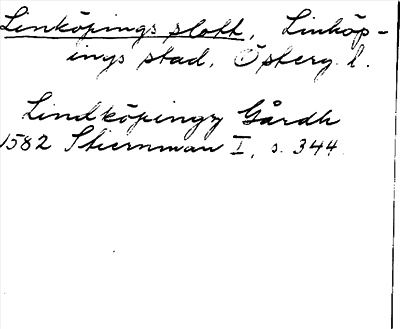 Linköpings slott, Linköp-
ings stad, Östergl.
Lindköpingz Gårdh
1582 Stiernman I, s. 344